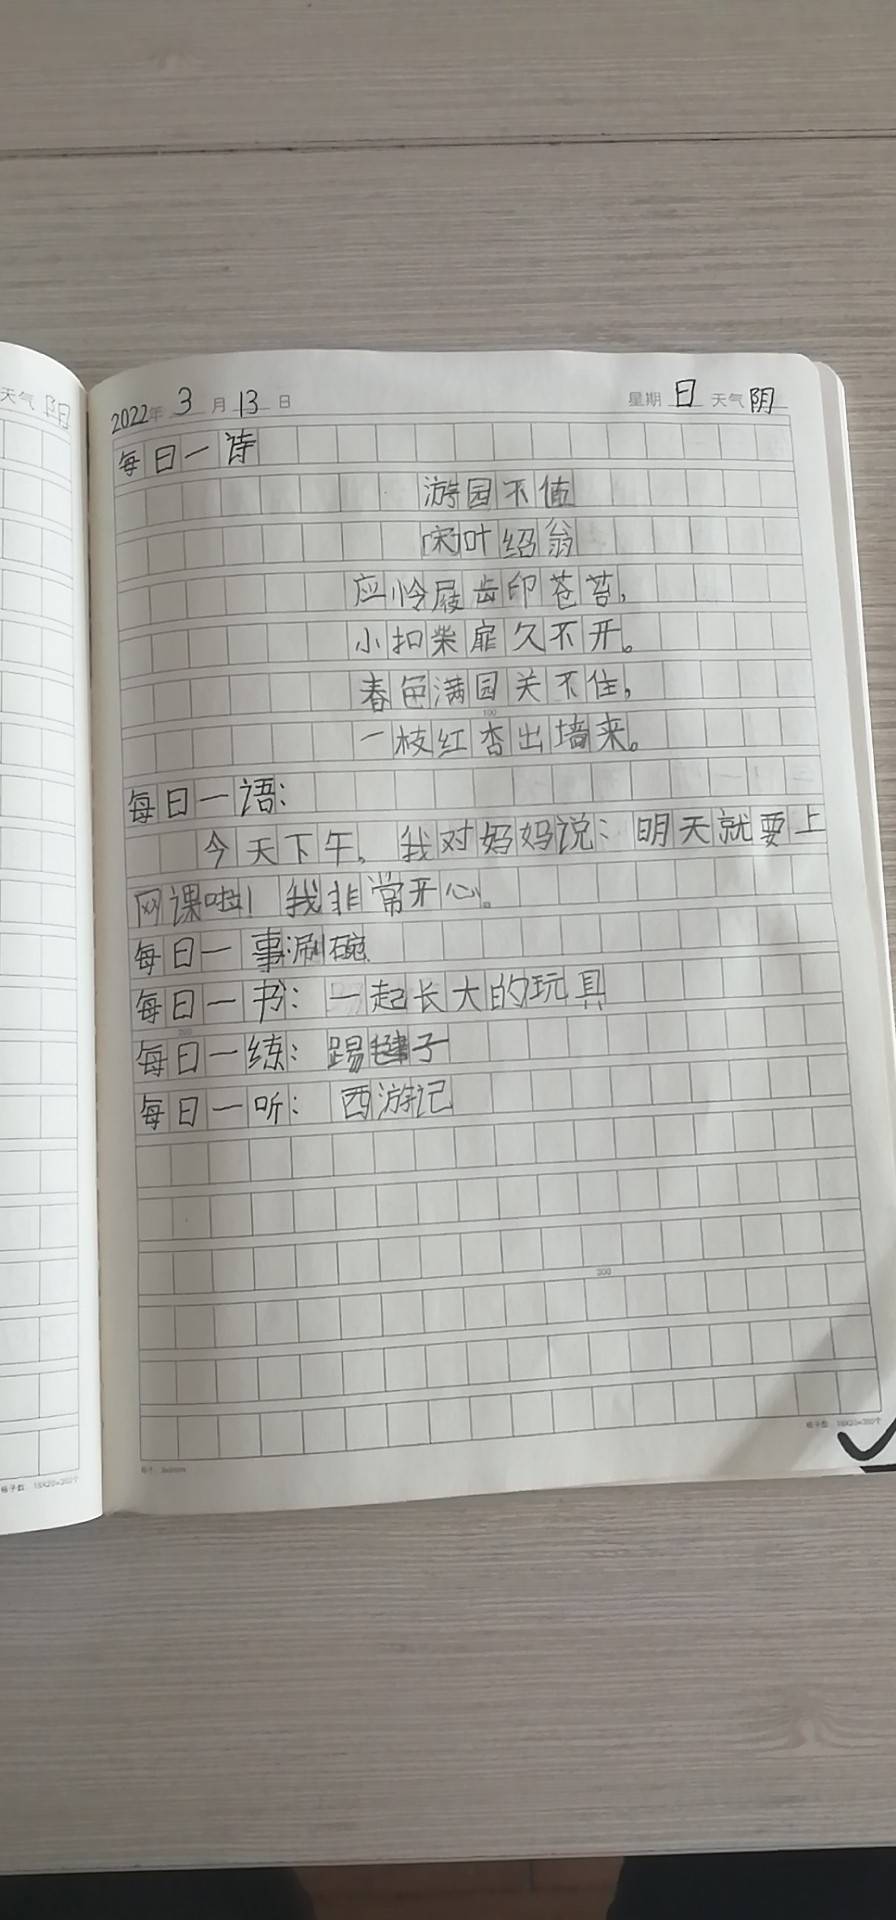 天气 阳
2022年 3 月 13 日 星期 日 天气 阴
每日一诗
游园不值
[宋]叶绍翁
应怜屐齿印苍苔,
小扣柴扉久不开。
春色满园关不住,
100
一枝红杏出墙来。
每日一语:
今天下午,我对妈妈说:明天就要上
网课啦!我非常开心。
每日一事涮碗
每日一书:一起长大的玩具
200
每日一练:踢毽子
每日一听:西游记
300
格子数:18X20=360个
格子数:18X20=360个